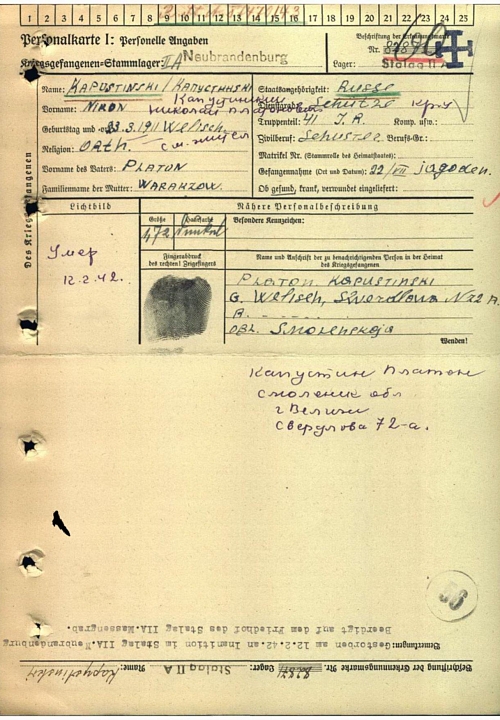 1 2 3 4 5 6 7 8 9 10 11 12 13 14 15 16 17 18 19 20 21 22 23 24 25
Personalkarte I: Personelle Angaben
Beschriftung der Erkennungsmarke
Nr.
Kriegsgefangenen-Stammlager: II A Neubrandenburg
Lager: Stalag II A
Des Kriegsgefangenen
Name: KAPUSTINSKI / КАПУСТИНСКИ
Staatsangehörigkeit: Russe
Vorname: NIKON
Dienstgrad: Schütze
Truppenteil: 41 I.R. Komp. usw.:
Geburtstag und -ort: 23.3.1911 Welisch
Zivilberuf: Schuster Berufs-Gr.:
Religion: Orth.
Matrikel Nr. (Stammrolle des Heimatstaates):
Vorname des Vaters: PLATON
Gefangennahme (Ort und Datum): 22/VII jagoden.
Familienname der Mutter: WARANZOW.
Ob gesund, krank, verwundet eingeliefert:
Lichtbild
Nähere Personalbeschreibung
Größe
Haarfarbe
Besondere Kennzeichen:
172
Dunkel
Умер
12.2.42.
Fingerabdruck
des rechten! Zeigefingers
Name und Anschrift der zu benachrichtigenden Person in der Heimat
des Kriegsgefangenen
PLATON KAPUSTINSKI
G. Welisch, Swerdlowa N 72 A.
OBL. SMOLENSKAJA
Wenden!
Капустин Платон
смоленск обл
г Велиж
Свердлова 72-а.
56
Beschriftung der Erkennungsmarke Nr. Lager: Stalag II A Name: Kapustinski
Bemerkungen: Gestorben am 12.2.42 an Inanition im Stalag IIA, Neubrandenburg
Beerdigt auf dem Friedhof des Stalag IIA. Massengrab.